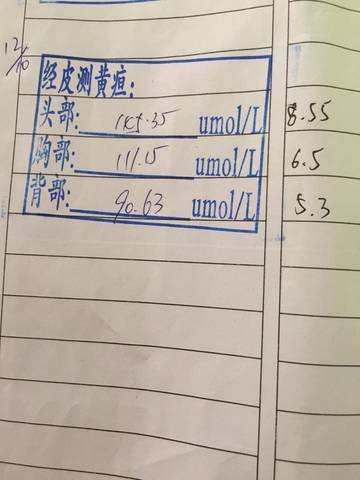 12/10
经皮测黄疸:
头部: 145.35 umol/L 8.55
胸部: 111.15 umol/L 6.5
背部: 90.63 umol/L 5.3